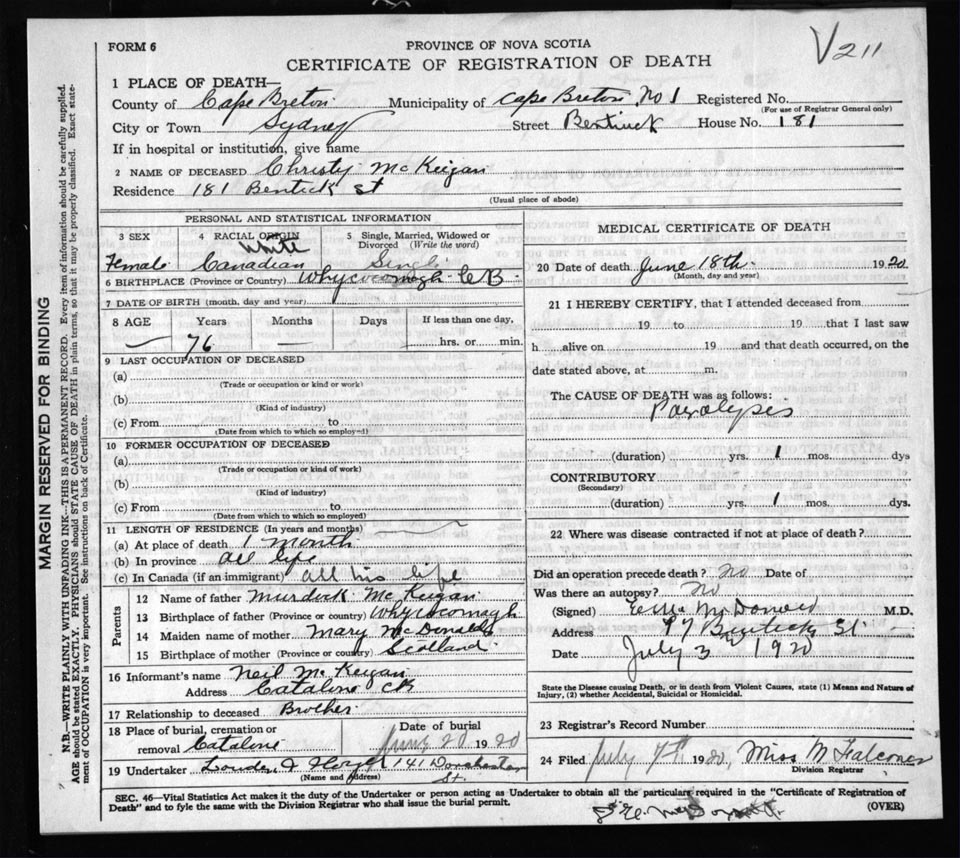 V211
FORM 6
PROVINCE OF NOVA SCOTIA
CERTIFICATE OF REGISTRATION OF DEATH
1 PLACE OF DEATH—
County of Cape Breton Municipality of Cape Breton No 1 Registered No.
(For use of Registrar General only)
City or Town Sydney Street Bentinck House No. 181
If in hospital or institution, give name
2 NAME OF DECEASED Christy McKeigan
Residence 181 Bentick St
(Usual place of abode)
PERSONAL AND STATISTICAL INFORMATION
3 SEX 4 RACIAL ORIGIN 5 Single, Married, Widowed or Divorced (Write the word)
White
Female Canadian Single
6 BIRTHPLACE (Province or Country) Whycocomagh CB
7 DATE OF BIRTH (month, day and year)
8 AGE Years Months Days If less than one day,
— 76 — hrs. or min.
9 LAST OCCUPATION OF DECEASED
(a)
(Trade or occupation or kind or work)
(b)
(Kind of industry)
(c) From to
(Date from which to which so employed)
10 FORMER OCCUPATION OF DECEASED
(a)
(Trade or occupation or kind of work)
(b)
(Kind of industry)
(c) From to
(Date from which to which so employed)
11 LENGTH OF RESIDENCE (In years and months)
(a) At place of death 1 month
(b) In province all life
(c) In Canada (if an immigrant) all his life
Parents
12 Name of father Murdock McKeigan
13 Birthplace of father (Province or country) Whycocomagh
14 Maiden name of mother Mary McDonald
15 Birthplace of mother (Province or country) Scotland
16 Informant's name Neil McKeigan
Address Catalone CB
17 Relationship to deceased Brother
18 Place of burial, cremation or removal Catalone Date of burial June 20 1920
19 Undertaker 141 Dorchester St.
(Name and Address)
MEDICAL CERTIFICATE OF DEATH
20 Date of death June 18th 1920
(Month, day and year)
21 I HEREBY CERTIFY, that I attended deceased from
19 to 19 that I last saw
h alive on 19 and that death occurred, on the
date stated above, at m.
The CAUSE OF DEATH was as follows:
Paralypsis
(duration) yrs. 1 mos. dys
CONTRIBUTORY
(Secondary)
(duration) yrs. 1 mos. dys.
22 Where was disease contracted if not at place of death?
Did an operation precede death? No Date of
Was there an autopsy? No
(Signed) McDonald M.D.
Address 97 Bentick St
Date July 3 1920
State the Disease causing Death, or in death from Violent Causes, state (1) Means and Nature of
Injury, (2) whether Accidental, Suicidal or Homicidal.
23 Registrar's Record Number
24 Filed July 7th 1920, Miss M Falconer
Division Registrar
SEC. 46—Vital Statistics Act makes it the duty of the Undertaker or person acting as Undertaker to obtain all the particulars required in the "Certificate of Registration of
Death" and to fyle the same with the Division Registrar who shall issue the burial permit. (OVER)
MARGIN RESERVED FOR BINDING
N.B.—WRITE PLAINLY WITH UNFADING INK—THIS IS A PERMANENT RECORD. Every item of information should be carefully supplied.
AGE should be stated EXACTLY. PHYSICIANS should STATE CAUSE OF DEATH in plain terms, so that it may be properly classified. Exact state-
ment of OCCUPATION is very important. See instructions on back of Certificate.